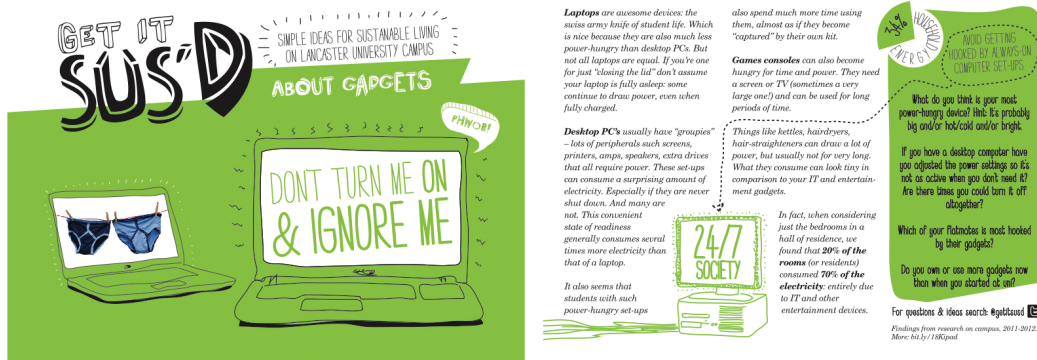 GET IT
SUS'D
SIMPLE IDEAS FOR SUSTAINABLE LIVING
ON LANCASTER UNIVERSITY CAMPUS
ABOUT GADGETS
PHWOR!
DON'T TURN ME ON
& IGNORE ME
Laptops are awesome devices: the
swiss army knife of student life. Which
is nice because they are also much less
power-hungry than desktop PCs. But
not all laptops are equal. If you're one
for just "closing the lid" don't assume
your laptop is fully asleep: some
continue to draw power, even when
fully charged.
Desktop PC's usually have "groupies"
– lots of peripherals such screens,
printers, amps, speakers, extra drives
that all require power. These set-ups
can consume a surprising amount of
electricity. Especially if they are never
shut down. And many are
not. This convenient
state of readiness
generally consumes sevral
times more electricity than
that of a laptop.
It also seems that
students with such
power-hungry set-ups
also spend much more time using
them, almost as if they become
"captured" by their own kit.
Games consoles can also become
hungry for time and power. They need
a screen or TV (sometimes a very
large one!) and can be used for long
periods of time.
Things like kettles, hairdryers,
hair-straighteners can draw a lot of
power, but usually not for very long.
What they consume can look tiny in
comparison to your IT and entertain-
ment gadgets.
24/7
SOCIETY
In fact, when considering
just the bedrooms in a
hall of residence, we
found that 20% of the
rooms (or residents)
consumed 70% of the
electricity: entirely due
to IT and other
entertainment devices.
HOUSEHOLD
ENERGY
AVOID GETTING
HOOKED BY ALWAYS-ON
COMPUTER SET-UPS
What do you think is your most
power-hungry device? Hint: It's probably
big and/or hot/cold and/or bright.
If you have a desktop computer have
you adjusted the power settings so it's
not as active when you don't need it?
Are there times you could turn it off
altogether?
Which of your flatmates is most hooked
by their gadgets?
Do you own or use more gadgets now
than when you started at uni?
For questions & ideas search: @getitsusd
Findings from research on campus, 2011-2012.
More: bit.ly/18Kipad